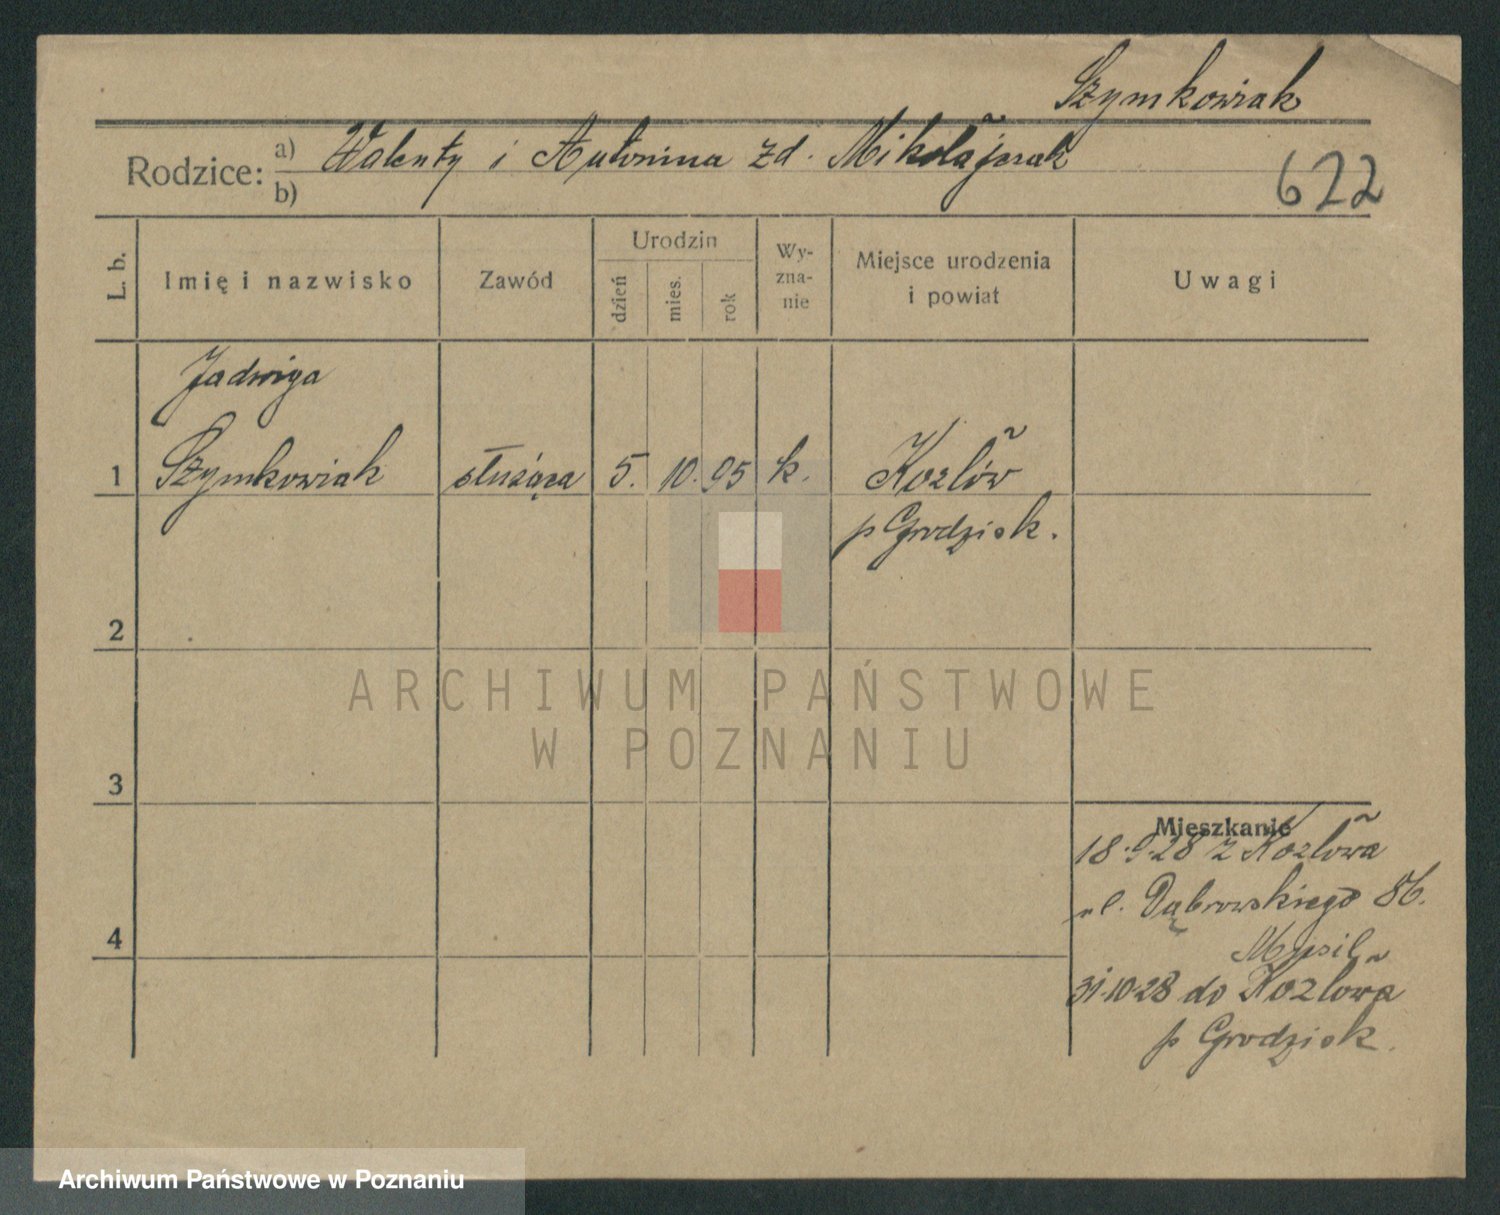 Szymkowiak
Rodzice: a) Walenty i Antonina zd. Mikołajczak
b)
622
L. b.
Imię i nazwisko
Zawód
Urodzin
dzień
mies.
rok
Wy-
zna-
nie
Miejsce urodzenia
i powiat
Uwagi
Jadwiga
1 Szymkowiak służąca 5. 10. 95 k. Kozłów
p Grodzisk.
2
ARCHIWUM PAŃSTWOWE
W POZNANIU
3
Mieszkanie
18.9.28 z Kozłowa
ul. Dąbrowskiego 86.
4
31.10.28 do Kozłowa
p Grodzisk.
Archiwum Państwowe w Poznaniu